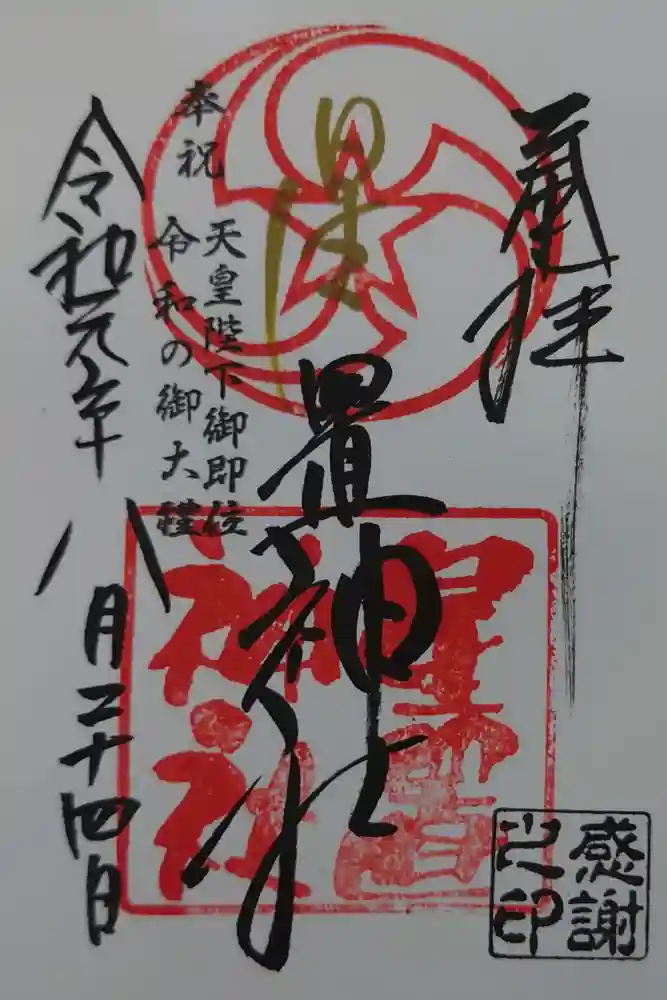 奉拝
星置神社
星置
神社
奉祝
天皇陛下御即位
令和の御大禮
令和元年八月二十四日
感謝
之印